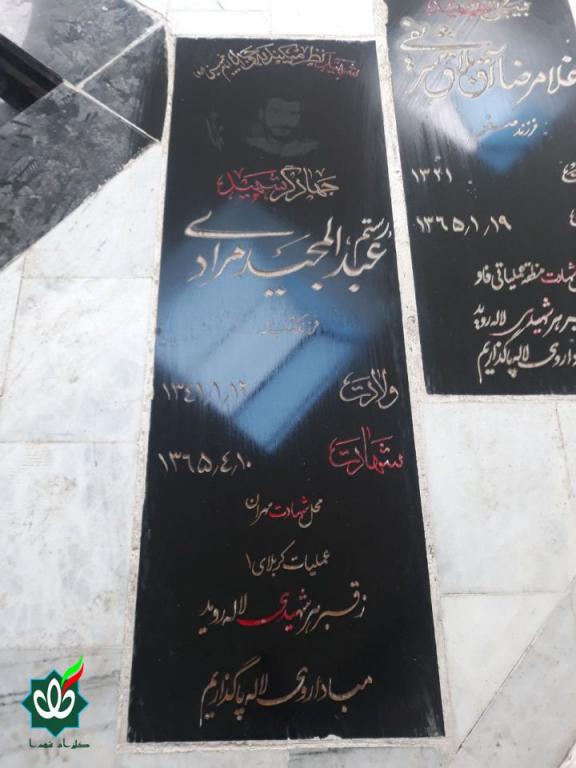 شهید نظر میکند به وجه الله
جهادگر شهید
(رستم)
عبدالمجید مرادی
فرزند
ولادت ۱۳۴۱٫۱٫۱۲
شهادت ۱۳۶۵٫۴٫۱۰
محل شهادت مهران
عملیات کربلای ۱
ز قبر هر شهیدی لاله روید
مبادا روی لاله پا گذاریم
غلامرضا
فرزند صفر
۱۳۲۱
۱۳۶۵٫۱٫۱۹
شهادت منطقه عملیاتی فاو
بر هر شهیدی لاله روید
دا روی لاله پا گذاریم
گلزار شهدا